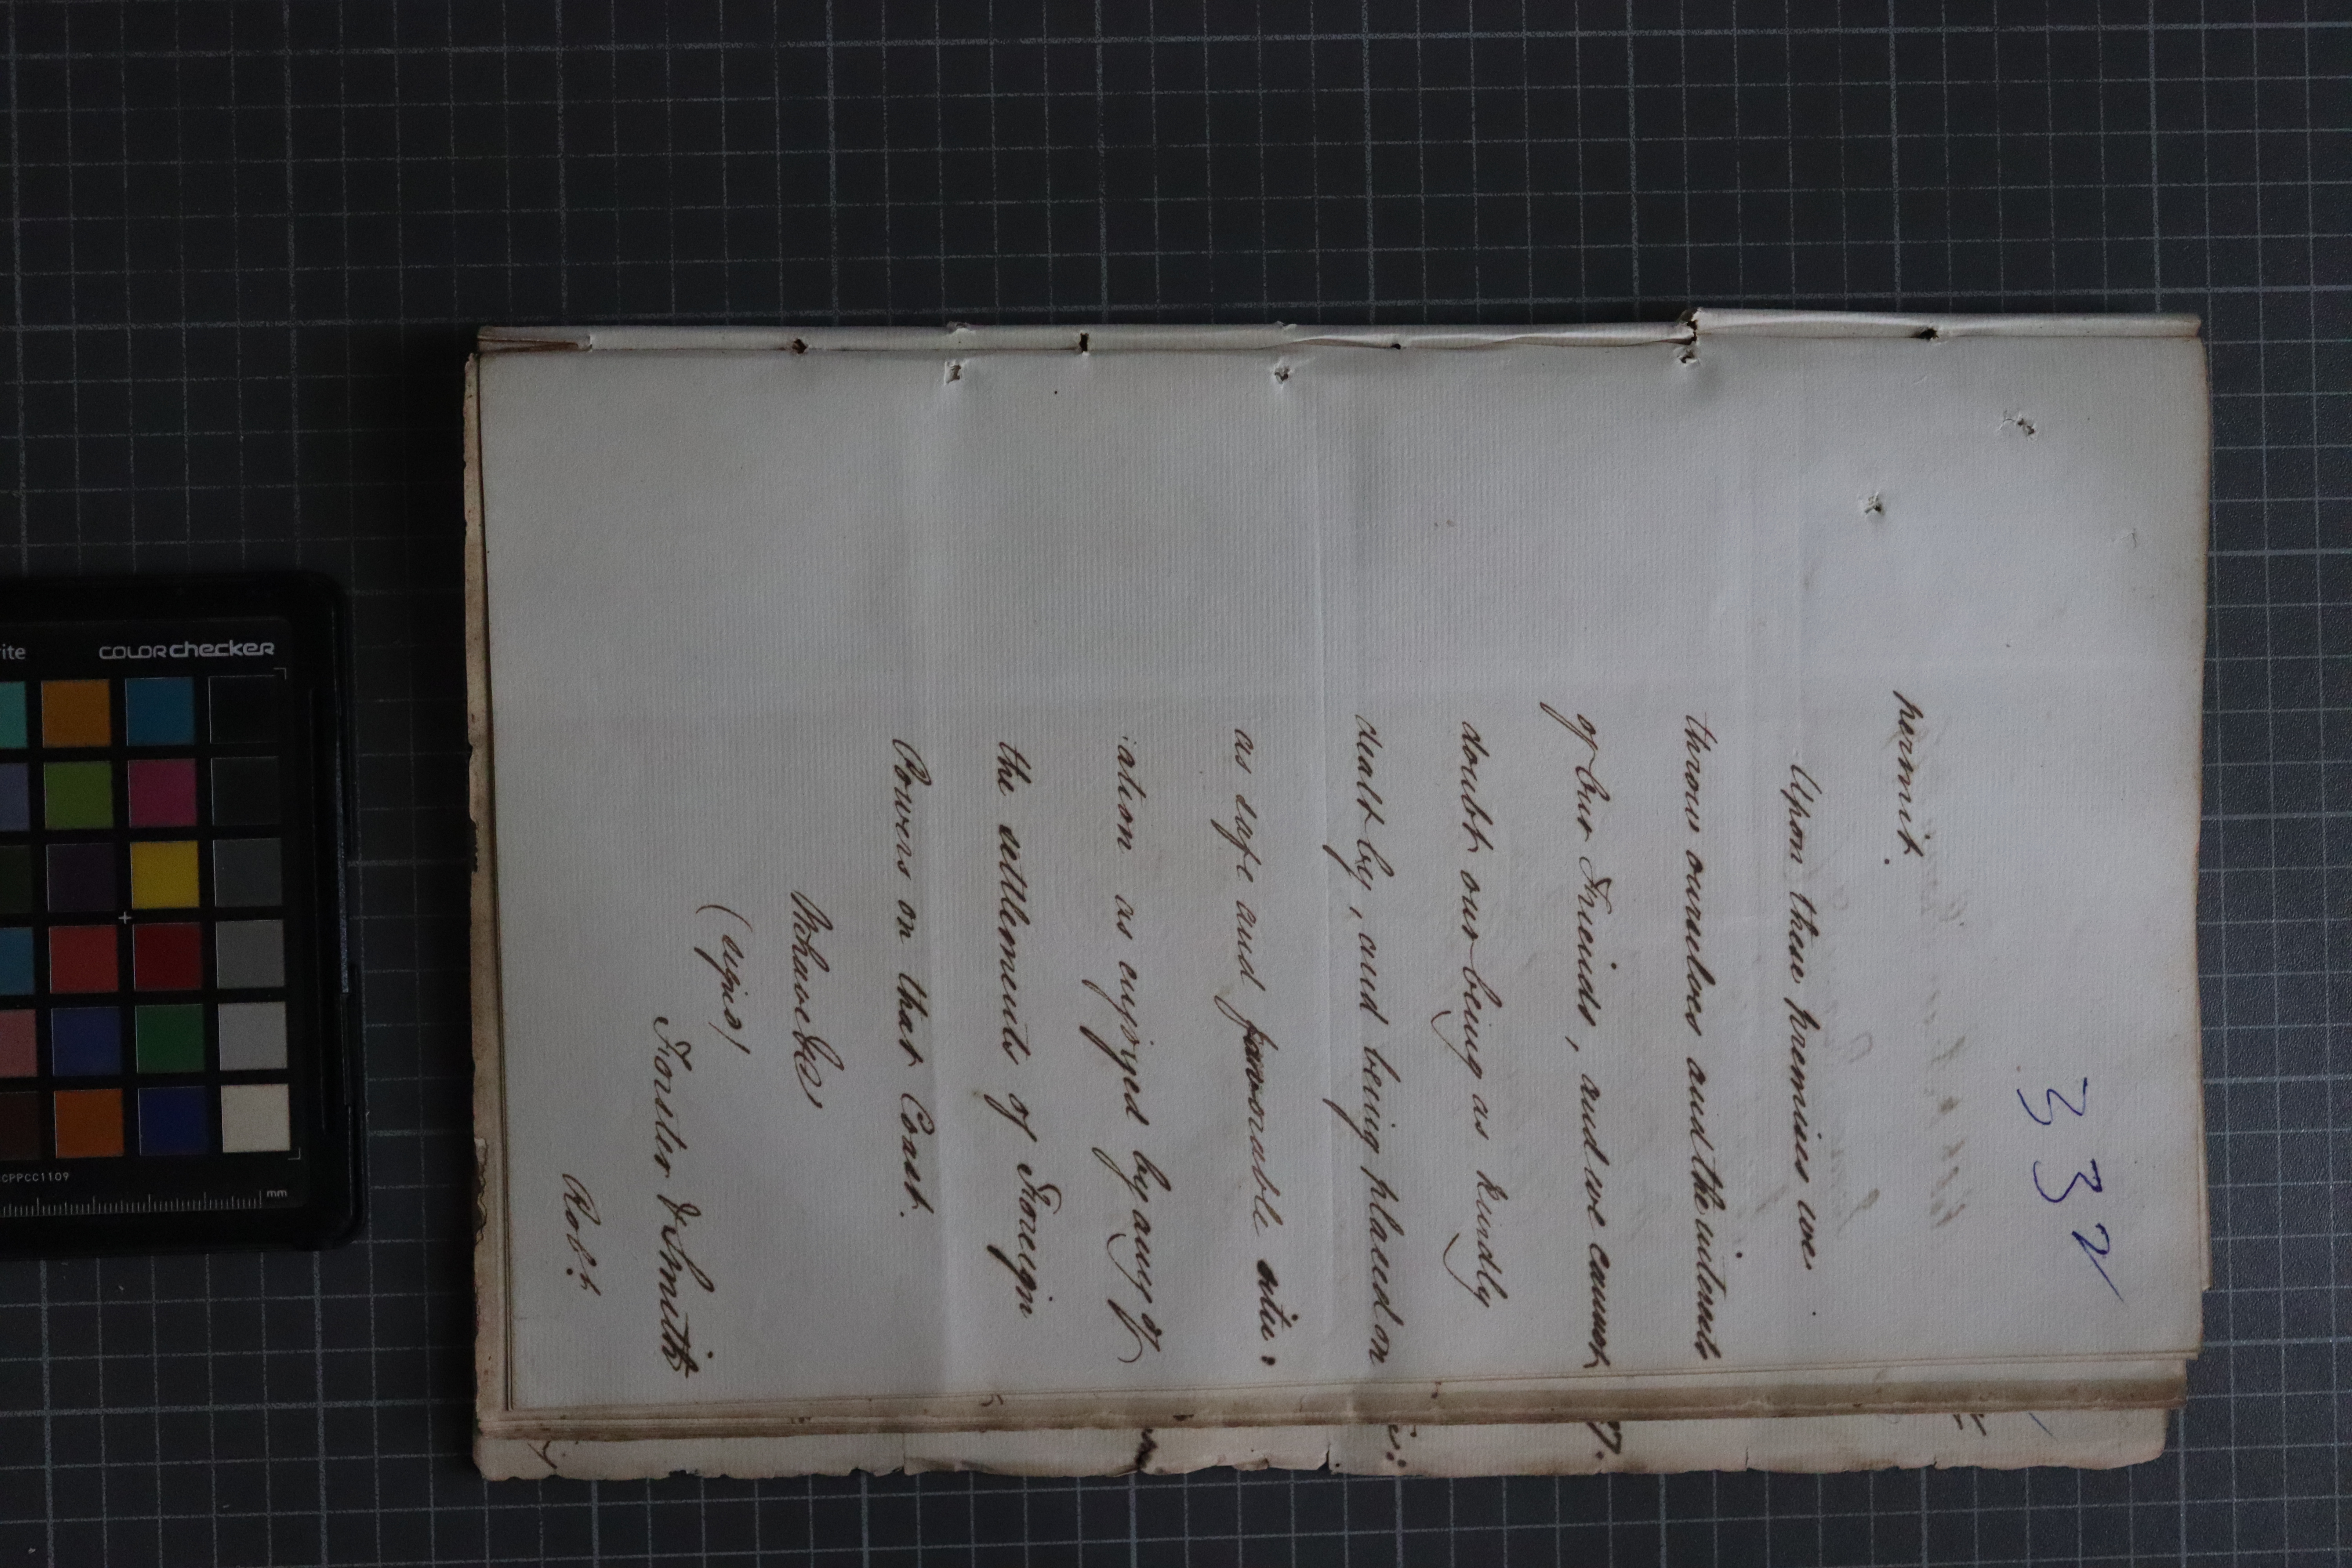 332
permit.
Upon these premises we
throw ourselves and the interests
of our Friends, and we cannot
doubt our being as kindly
dealt by, and being placed on
as safe and favorable situ:
:ation as enjoyed by any of
the settlements of Foreign
Powers on that Coast.
We have &ca
(signed)
Forster & Smith
Robt
rite
colorchecker
CPPCC1109
mm